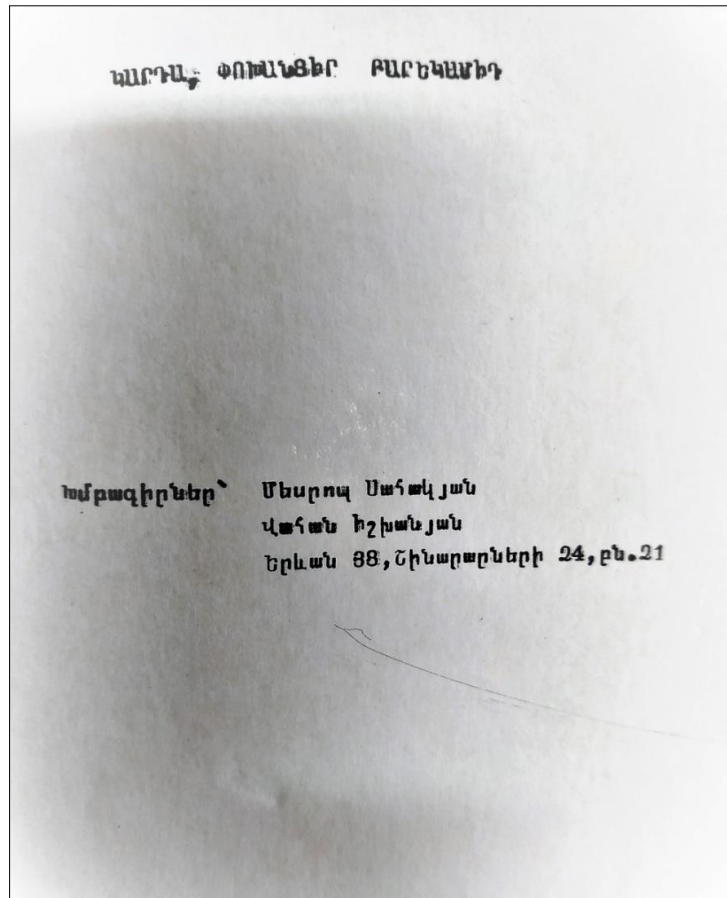 ԿԱՐԴԱ, ՓՈԽԱՆՑԻՐ ԲԱՐԵԿԱՄԻԴ
Խմբագիրներ՝ Մեսրոպ Սահակյան
Վահան Իշխանյան
Երևան 38, Շինարարների 24, բն.21